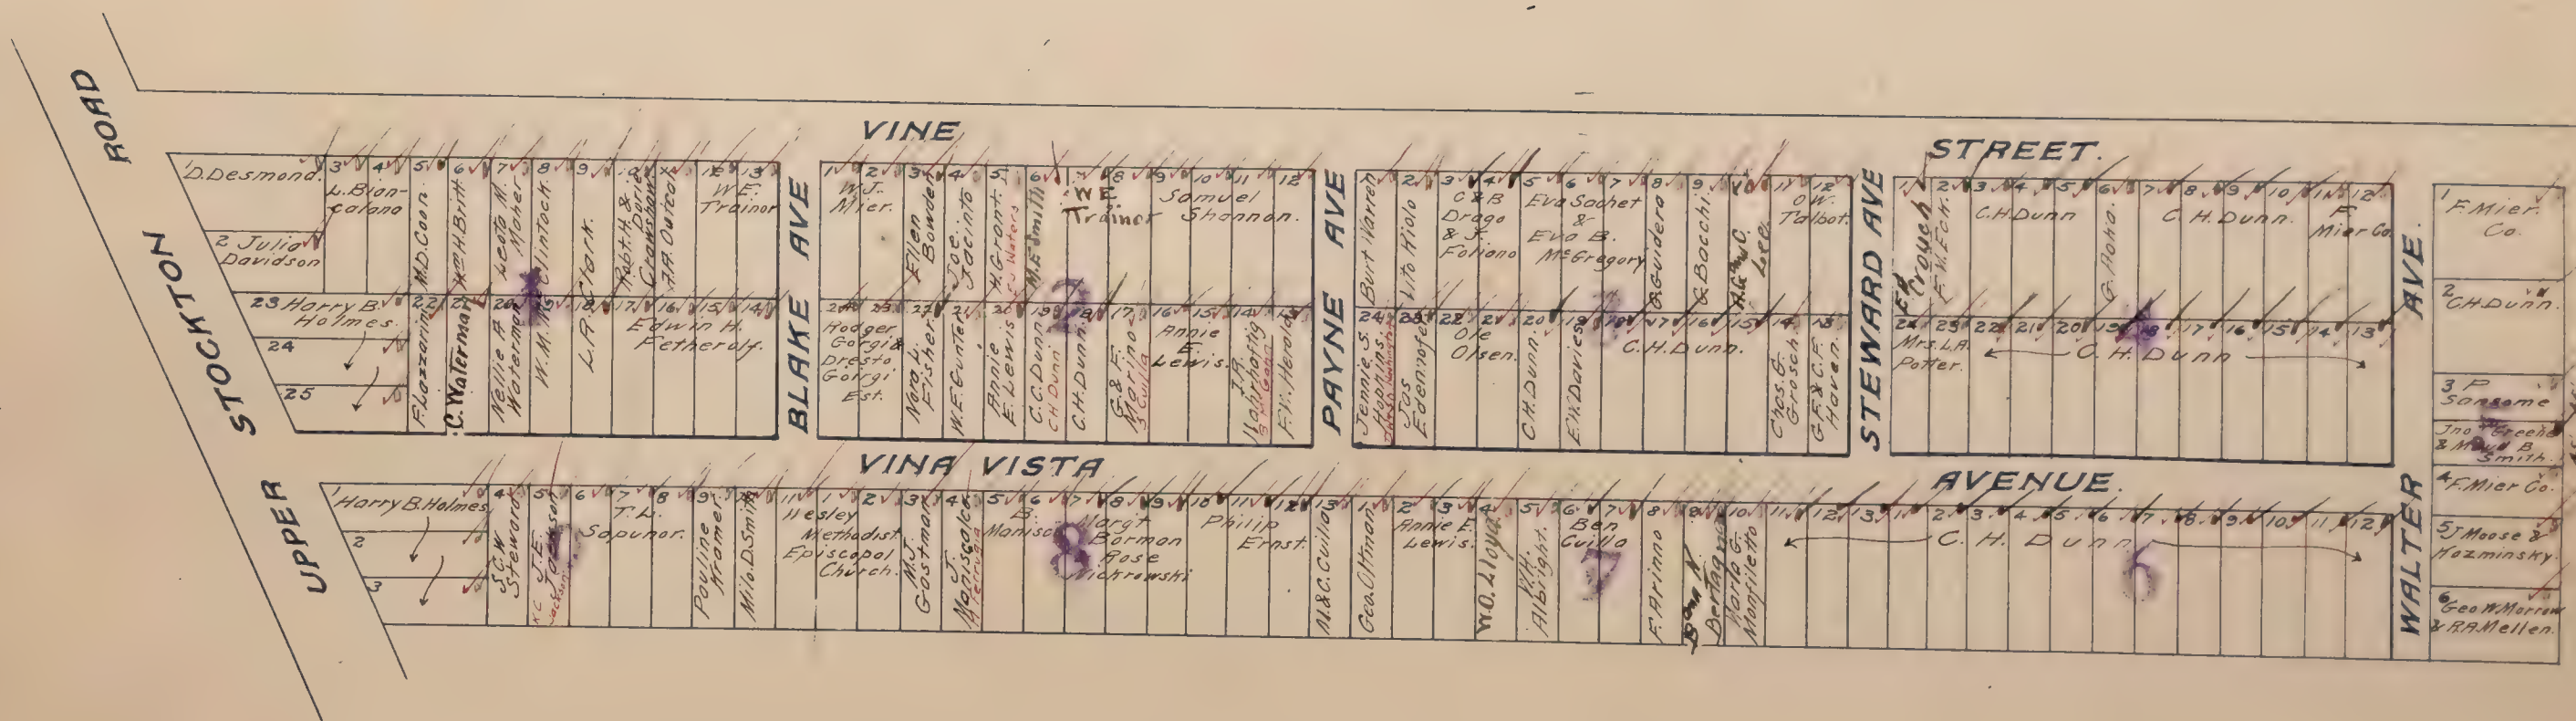 ROAD
STOCKTON
UPPER
VINE
STREET.
BLAKE AVE
PAYNE AVE
STEWARD AVE
WALTER AVE.
VINA VISTA
AVENUE.
1 D. Desmond.
2 Julia
Davidson
3 4
L. Bian-
calano
5 M.D. Coon.
6 Wm H. Britt
7 Leota M.
Maher
8 W. M. McClintock
9 L. A. Clark.
10 Robt. H. &
Dorie
Crawshaw
12 13
W.E.
Trainor
23 Harry B.
Holmes.
24
25
22 F. Lazzarini
21 C. Waterman
20 Nellie A.
Waterman
19
18
17 16 15 14
Edwin H.
Fetherolf.
1 2
W.J.
Mier.
3 Ellen
Bowden
4 Joe.
Jacinto
5 H. Grant.
6 M.E. Smith
7 8
W E
Trainor
9 10 11 12
Samuel
Shannon.
24 23
Rodger
Gorgi &
Dresto
Goirgi
Est.
22 Nora L.
Fisher.
21 W.E. Gunter
20 Annie
E. Lewis
19 C.C. Dunn
C H Dunn
18 C.H. Dunn.
17 G. & F.
Marino
16 15
Annie
E.
Lewis.
14 J.A.
13 F.V. Herold
1 Burt Warren
2 Vito Riolo
3 4
C & B
Drago
& J.
Foliano
5 6 7
Eva Sachet
&
Eva B.
McGregory
8 G. Guidera
9 G. Bacchi.
10
Lee.
11 12
O.W.
Talbot.
24 Jennie S.
Hopkins.
23 Jos
Edenhofer
22 21
Ole
Olsen.
20 C.H. Dunn
19 F.W. Davies
18 17 16 15
C.H. Dunn.
14 Chas. G.
Grosch
13 G.F. & C.F.
Haven.
1 Crouch
2 F.W. Eck.
3 4 5
C.H. Dunn
6 G. Aoha.
7 8 9 10
C.H. Dunn.
11 12
F.
Mier Co.
24 23
Mrs. L.A.
Potter.
22 21 20 19 18 17 16 15 14 13
C. H. Dunn
1 F. Mier
Co.
2 C.H. Dunn.
3 P
Sansome
Jno Greene
& Maud B
Smith.
4 F. Mier Co.
5 J. Moose &
Kozminsky.
6 Geo W. Morrow
& R.A. Mellen.
1 Harry B. Holmes
2
3
4 S.C.W.
Steward
5 J.E.
Jackson
6 7 8
T.L.
Sapunor.
9 Pauline
Kramer.
10 Milo. D. Smith
11 1 2
Wesley
Methodist
Episcopal
Church.
3 M.J.
Gastman
4 J.
Maniscalco
5 6
B.
7 8 9
Margt
Borman
Rose
Nickrowski
10 11 12
Philip
Ernst.
13 M. & C. Cuilla
1 Geo. Oltman
2 3
Annie E.
Lewis.
4 W.O. Lloyd
5 W.H.
Albright.
6 7
Ben
Cuilla
8 F. Arino
9
10 Karlo G.
Monfiletto
11 12 13 1 2 3 4 5 6 7 8 9 10 11 12
C. H. Dunn
2
8
7
6